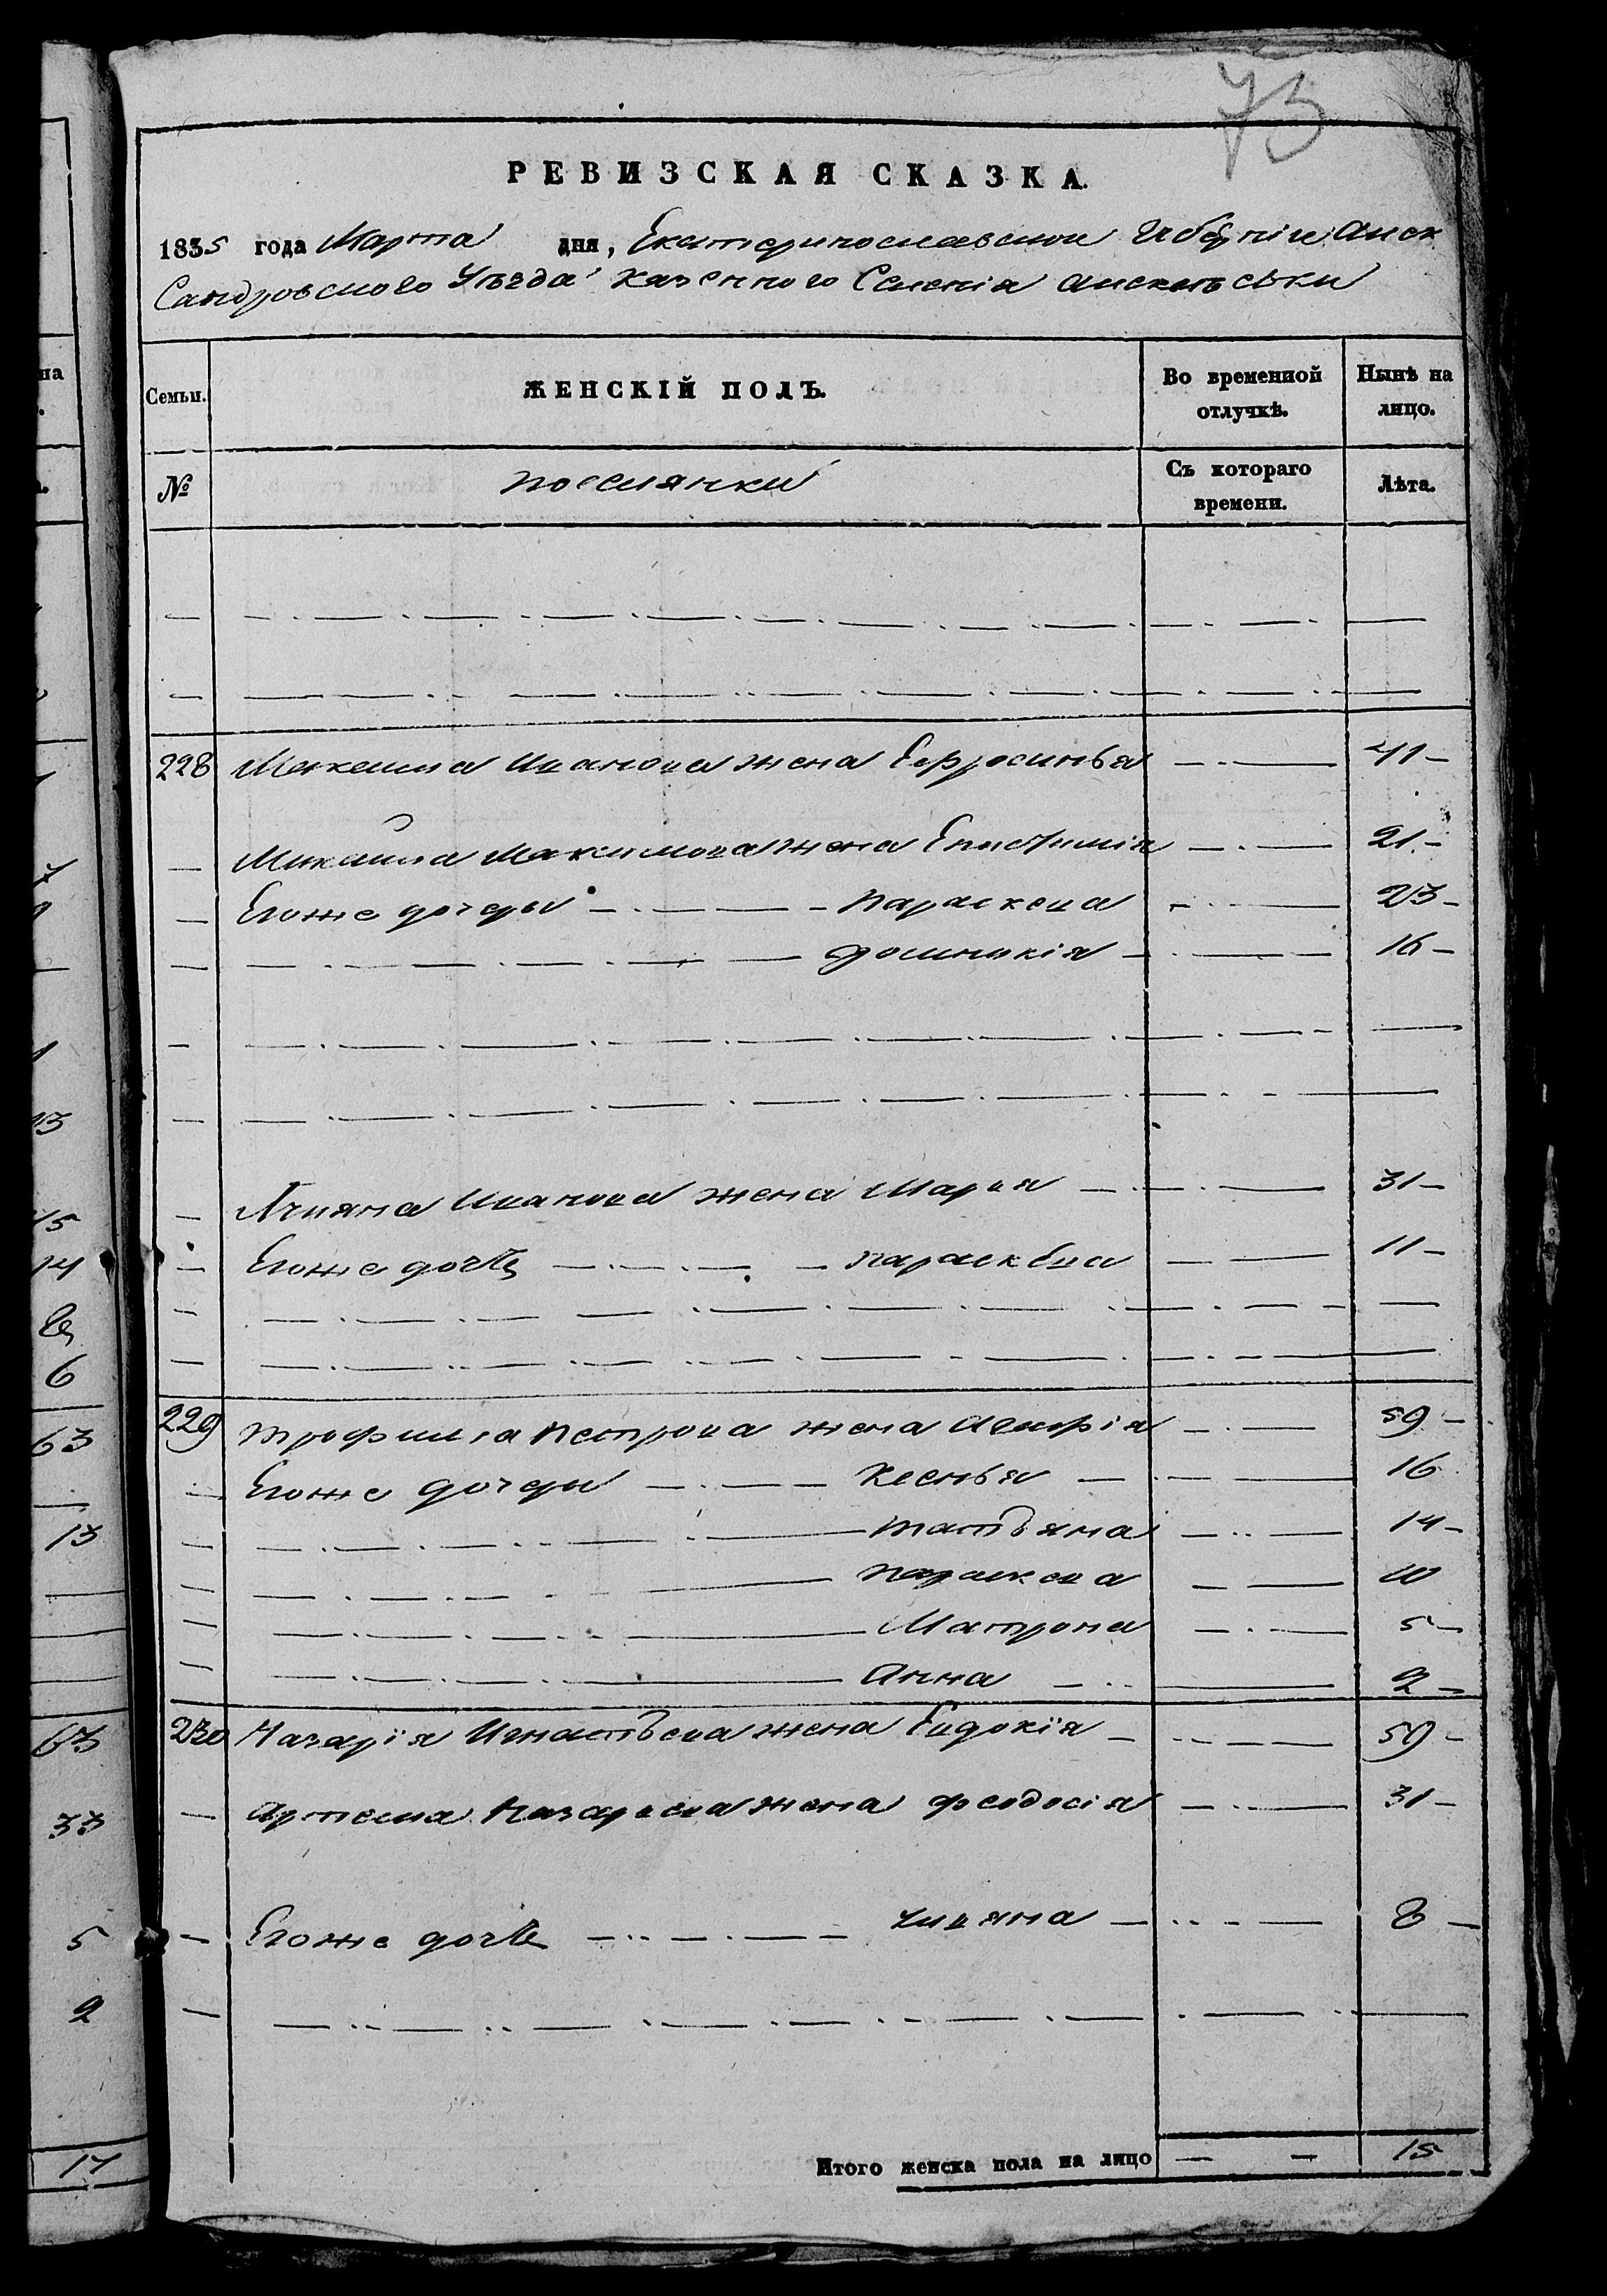 73
РЕВИЗСКАЯ СКАЗКА.
1835 года Марта дня, Екатеринославской Губерніи Алек
Сандровского Уѣзда Казенного Селенія Алексѣевки
Семьи.
ЖЕНСКІЙ ПОЛЪ.
Во временной отлучкѣ.
Нынѣ на лицо.
№
поселянки
Съ котораго времени.
Лѣта.
228 Максима Иванова жена Ефросинья 41
Михаила Максимова жена Епистимія 21
Егоже дочери Параскева 23
Домникія 16
Иванова жена Марія 31
Егоже дочь Параскева 11
229 Трофима Петрова жена Агафія 59
Егоже дочери Ксенья 16
Татьяна 14
Параскева 10
Матрона 5
Анна 2
230 Назарія Игнатьева жена Евдокія 59
Артема Назарева жена Феодосія 31
Егоже дочь 8
Итого женска пола на лицо 15